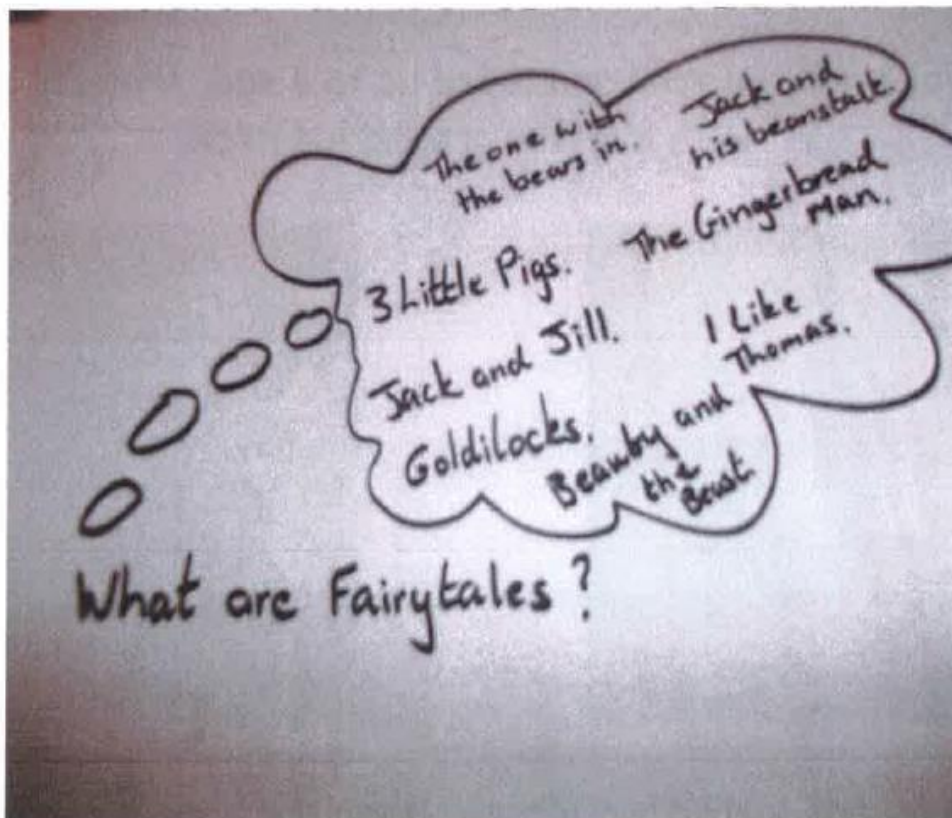 The one with
the bears in.
Jack and
his beanstalk.
3 Little Pigs.
The Gingerbread
Man.
Jack and Jill.
I Like
Thomas.
Goldilocks.
Beauty and
the
Beast
What are Fairytales?